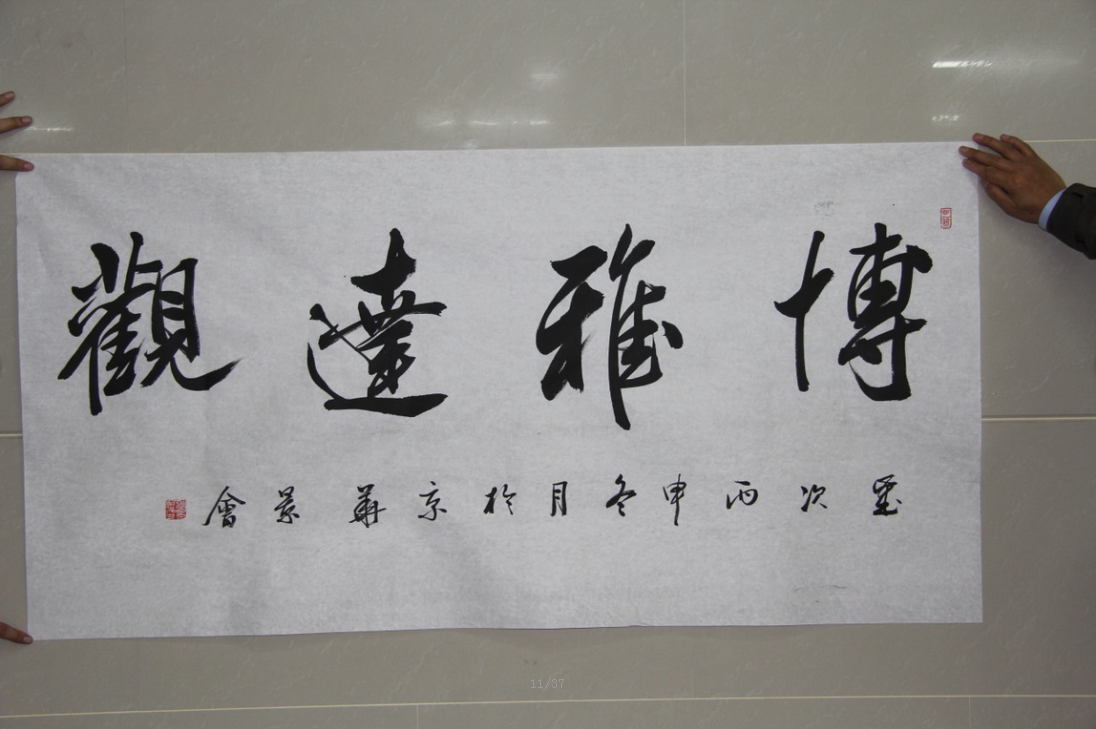 博雅達觀
歲次丙申冬月於京華景會
11/37